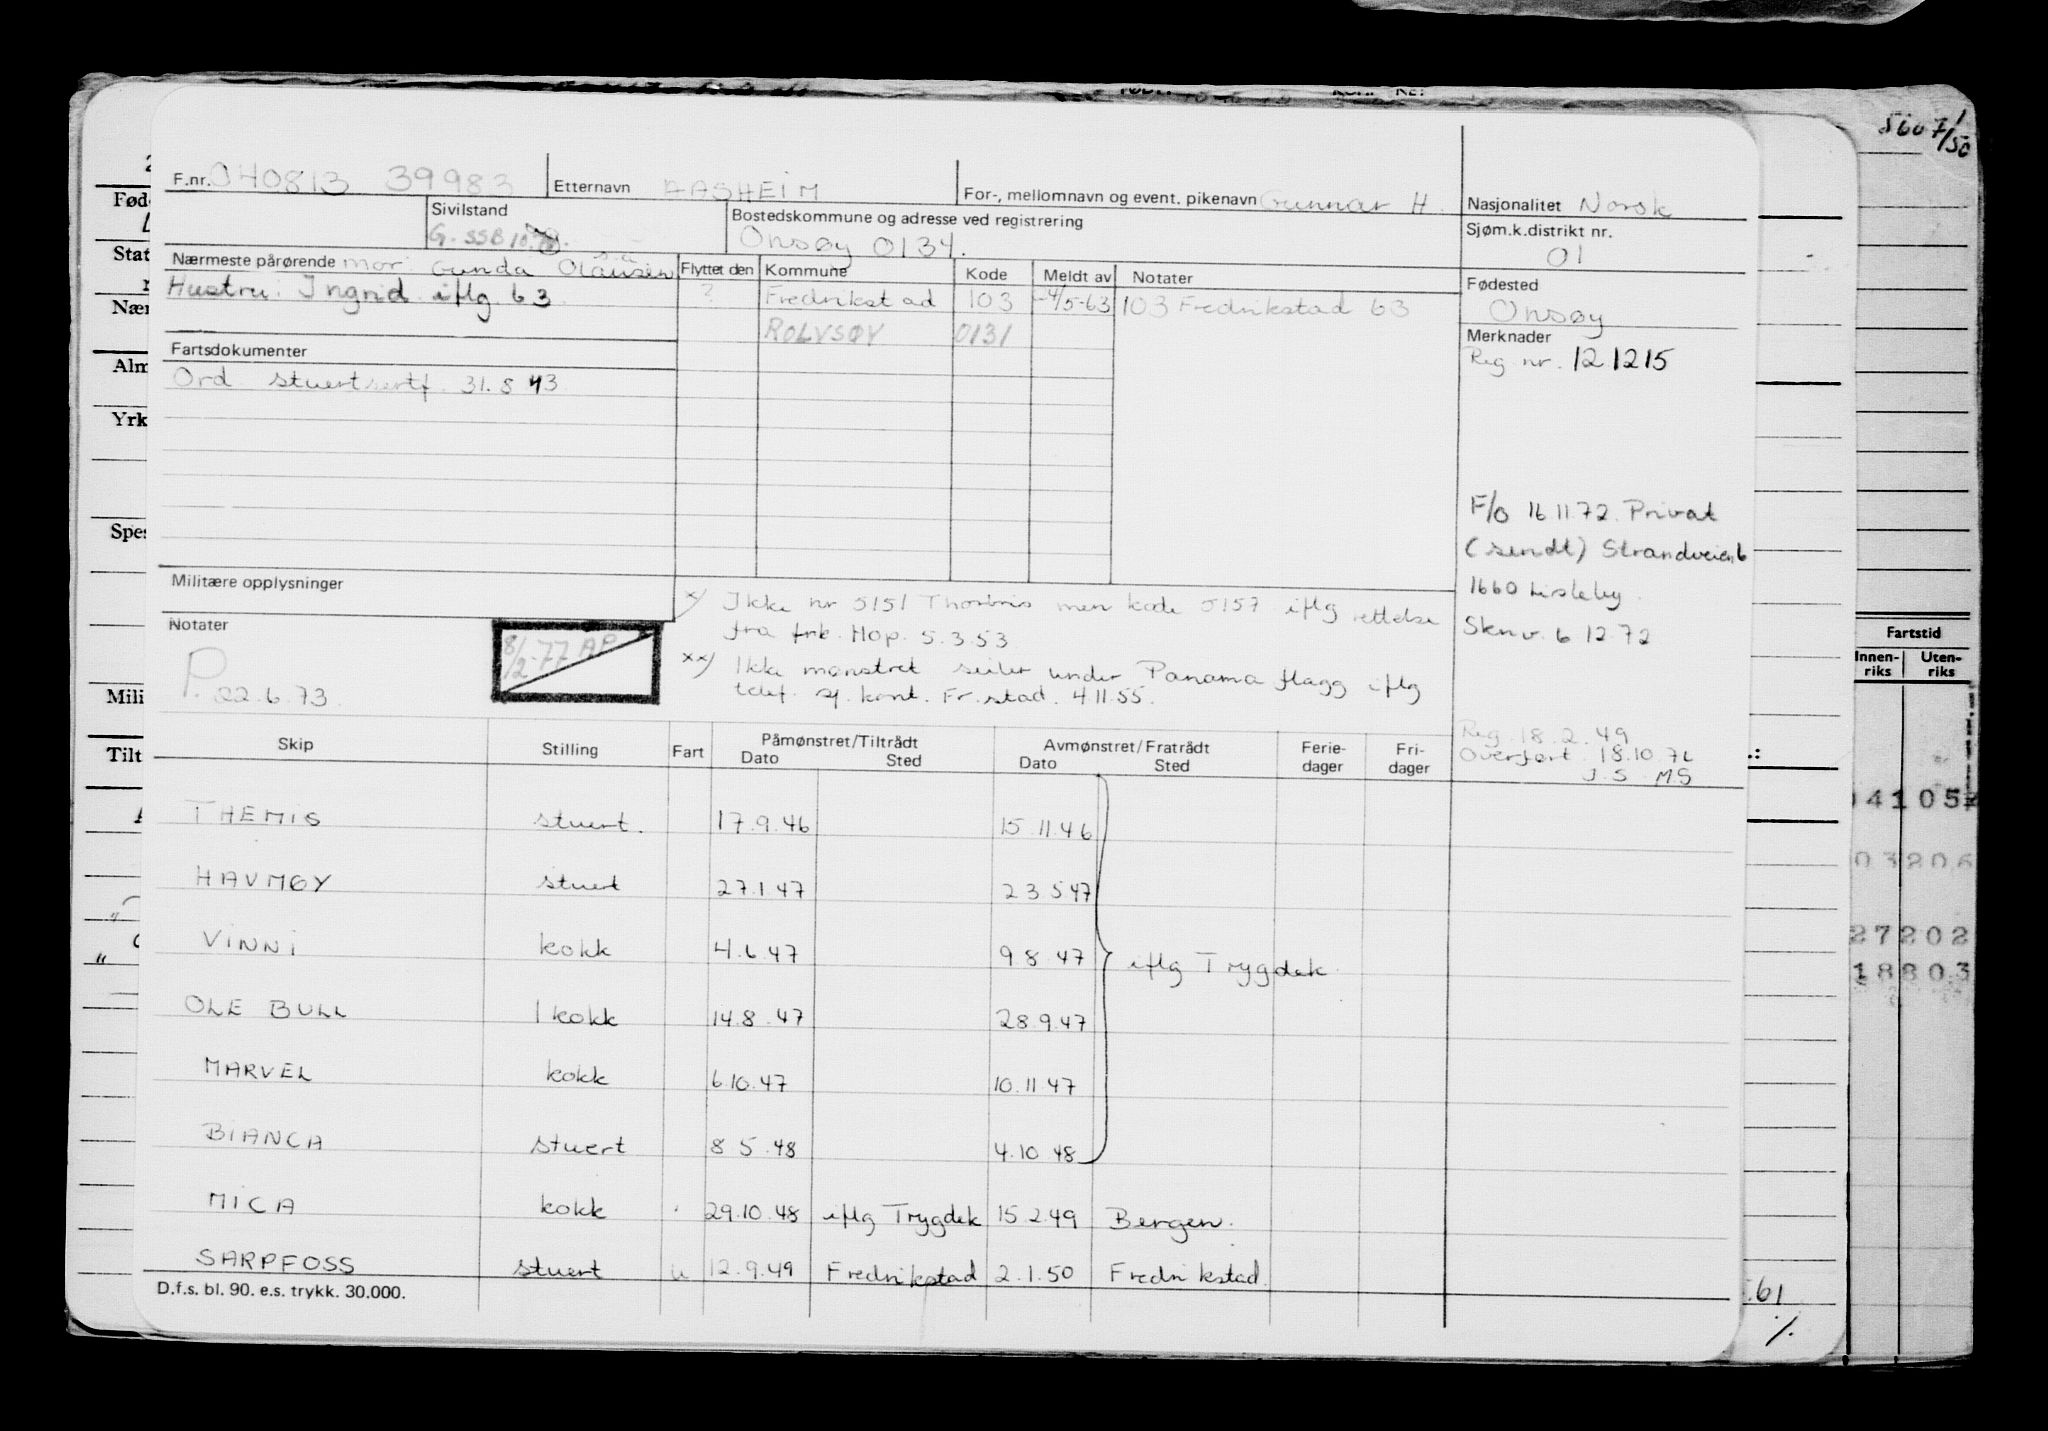 5607/50
F.nr. 040813 39983 Etternavn AASHEIM For-, mellomnavn og event. pikenavn Gunnar H. Nasjonalitet Norsk
Sivilstand Bostedskommune og adresse ved registrering Sjøm.k.distrikt nr.
G. SSB 10. Onsøy 0134. 01
Nærmeste pårørende mor: Gunda Olausen Flyttet den Kommune Kode Meldt av Notater Fødested
Hustru: Ingrid iflg 63 ? Fredrikstad 103 -4/5-63 103 Fredrikstad 63 Onsøy
ROLVSØY 0131 Merknader
Fartsdokumenter Reg. nr. 121215
Ord stuertsertf. 31.8 43
F/O 16 11.72. Privat
(sendt) Strandveien 6
1660 Lisleby.
Skr.v. 6 12.72
Militære opplysninger
x) Ikke nr 5151 Thorbris men kode 5157 iflg rettelse
fra frk. Hop. 5.3.53
xx) Ikke mønstret seiler under Panama flagg iflg
telef. sj. kont. Fr.stad. 4 11.55.
Notater
8/2-77 AP
P. 22.6.73
Reg. 18.2.49
Overført 18.10.72
J.S. M.S
Skip Stilling Fart Påmønstret/Tiltrådt Avmønstret/Fratrådt Ferie- Fri-
Dato Sted Dato Sted dager dager
THEMIS stuert. 17.9.46 15.11.46
HAVMØY stuert 27.1.47 23.5.47
VINNI kokk 4.6.47 9.8.47 iflg Trygdek.
OLE BULL 1 kokk 14.8.47 28.9.47
MARVEL kokk 6.10.47 10.11.47
BIANCA stuert 8 5.48 4.10.48
MICA kokk 29.10.48 iflg Trygdek 15 2.49 Bergen.
SARPFOSS stuert u 12.9.49 Fredrikstad 2.1.50 Fredrikstad.
D.f.s. bl. 90. e.s. trykk. 30.000.
Fød
Stat
Nær
Alm
Yrk
Spes
Mili
Tilt
Fartstid
Innen- Uten-
riks riks
04105
03206
27202
18803
.61
%